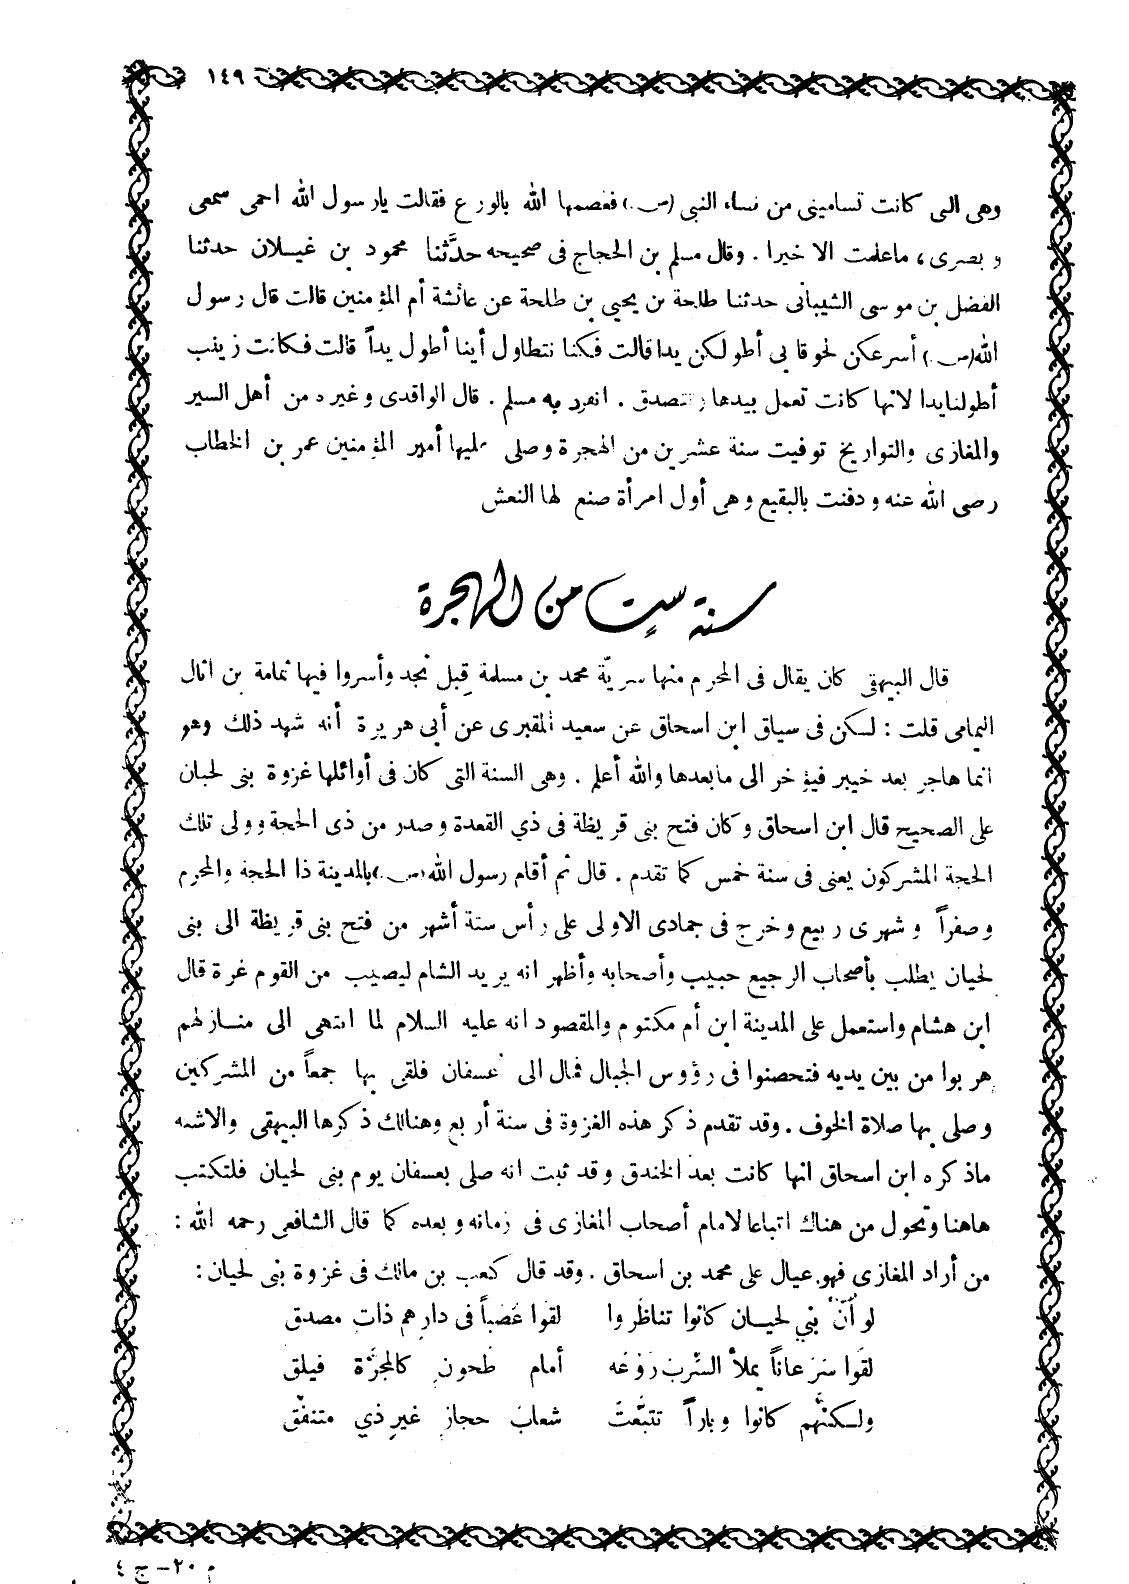 ١٤٩
وهى التى كانت تسامينى من نساء النبى (ص) فعصمها الله بالورع فقالت يارسول الله احمى سمعى
وبصرى، ماعلمت الا خيرا . وقال مسلم بن الحجاج فى صحيحه حدَّثنا محمود بن غيلان حدثنا
الفضل بن موسى الشيبانى حدثنا طلحة بن يحيى بن طلحة عن عائشة أم المؤمنين قالت قال رسول
الله (ص) أسرعكن لحوقا بى أطولكن يدا قالت فكنا نتطاول أينا أطول يداً قالت فكانت زينب
أطولنا يدا لانها كانت تعمل بيدها وتتصدق . انفرد به مسلم . قال الواقدى وغيره من أهل السير
والمغازى والتواريخ توفيت سنة عشرين من الهجرة وصلى عليها أمير المؤمنين عمر بن الخطاب
رضى الله عنه ودفنت بالبقيع وهى أول امرأة صنع لها النعش
سنة ست من الهجرة
قال البيهقى كان يقال فى المحرم منها سريّة محمد بن مسلمة قِبل نجد وأسروا فيها ثمامة بن اثال
اليمامى قلت : لكن فى سياق ابن اسحاق عن سعيد المقبرى عن أبى هريرة أنه شهد ذلك وهو
انما هاجر بعد خيبر فيؤخر الى مابعدها والله أعلم . وهى السنة التى كان فى أوائلها غزوة بنى لحيان
على الصحيح قال ابن اسحاق وكان فتح بنى قريظة فى ذي القعدة وصدر من ذى الحجة وولى تلك
الحجة المشركون يعنى فى سنة خمس كما تقدم . قال ثم أقام رسول الله (ص) بالمدينة ذا الحجة والمحرم
وصفراً وشهرى ربيع وخرج فى جمادى الاولى على رأس ستة أشهر من فتح بنى قريظة الى بنى
لحيان يطلب بأصحاب الرجيع خبيب وأصحابه وأظهر انه يريد الشام ليصيب من القوم غرة قال
ابن هشام واستعمل على المدينة ابن أم مكتوم والمقصود انه عليه السلام لما انتهى الى منازلهم
هربوا من بين يديه فتحصنوا فى رؤوس الجبال فمال الى عسفان فلقى بها جمعاً من المشركين
وصلى بها صلاة الخوف . وقد تقدم ذكر هذه الغزوة فى سنة أربع وهنالك ذكرها البيهقى والاشبه
ماذكره ابن اسحاق انها كانت بعد الخندق وقد ثبت انه صلى بعسفان يوم بنى لحيان فلتكتب
هاهنا وتحول من هناك اتباعا لامام أصحاب المغازى فى زمانه وبعده كما قال الشافعى رحمه الله :
من أراد المغازى فهو عيال على محمد بن اسحاق . وقد قال كعب بن مالك فى غزوة بنى لحيان :
لو أنَّ بني لحيان كانوا تناظروا لقوا عُصَباً فى دارهم ذات مصدق
لقوا سَرَعاناً يملأ السَّرب رَوْعه أمام طَحون كالمجرَّة فيلق
ولكنَّهم كانوا وِباراً تتبَّعتْ شعاب حجاز غير ذي متنفَّق
م ٢٠ - ج ٤